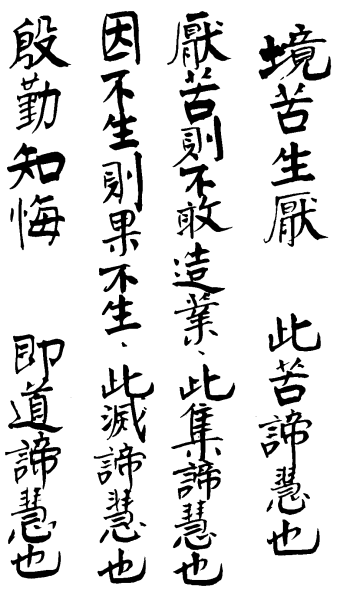 境苦生厭 此苦諦慧也
厭苦則不敢造業、此集諦慧也
因不生則果不生、此滅諦慧也
殷勤知悔 即道諦慧也